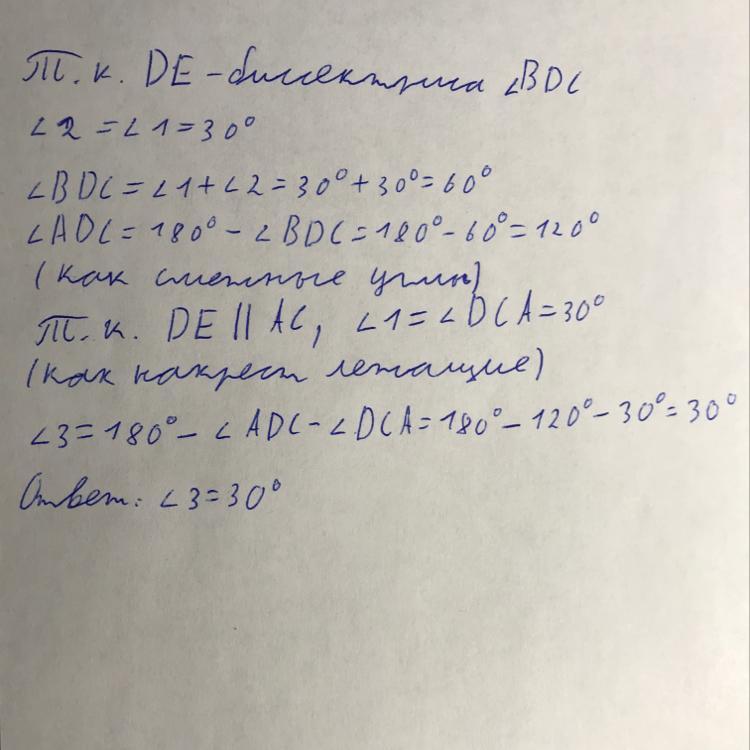 Т.к. DE - биссектриса ∠BDC
∠2 = ∠1 = 30°
∠BDC = ∠1 + ∠2 = 30° + 30° = 60°
∠ADC = 180° - ∠BDC = 180° - 60° = 120°
(как смежные углы)
Т.к. DE || AC, ∠1 = ∠DCA = 30°
(как накрест лежащие)
∠3 = 180° - ∠ADC - ∠DCA = 180° - 120° - 30° = 30°
Ответ: ∠3 = 30°